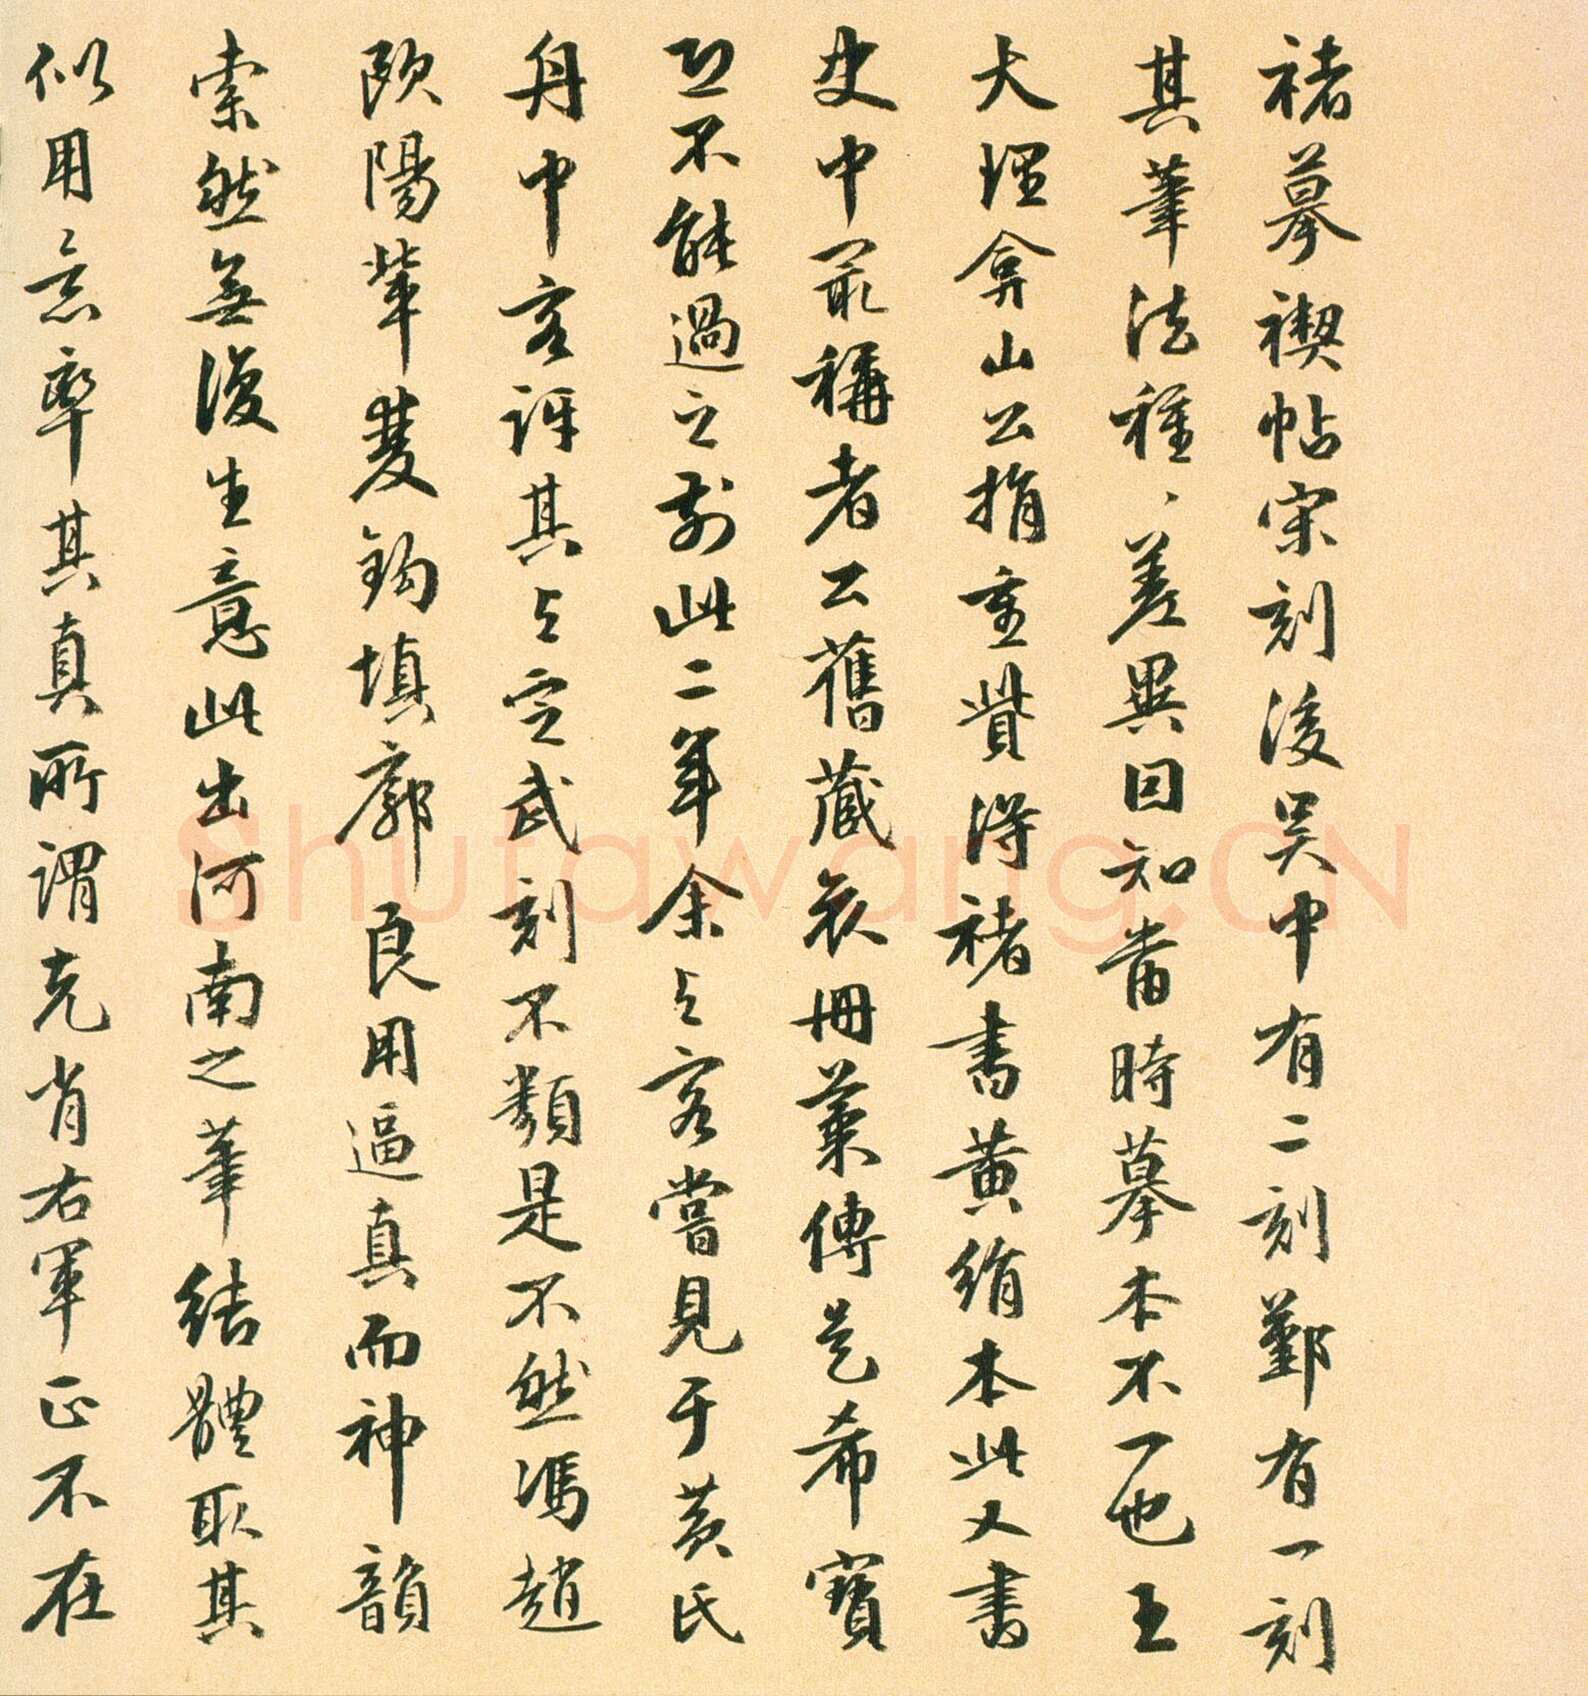 褚摹禊帖宋刻後吳中有二刻鄞有一刻
其筆法種〻差異因知當時摹本不一也王
大理弇山公捐重貲得褚書黃絹本此又書
史中最稱者公舊藏長冊葉傳是希寶
恐不能過之刻此二年余與客嘗見于黃氏
舟中客訝其與定武刻不類是不然馮趙
歐陽輩雙鈎填廓良用逼真而神韻
索然無復生意此出河南之筆結體取其
似用意率其真所謂克肖右軍正不在
Shufawang.CN